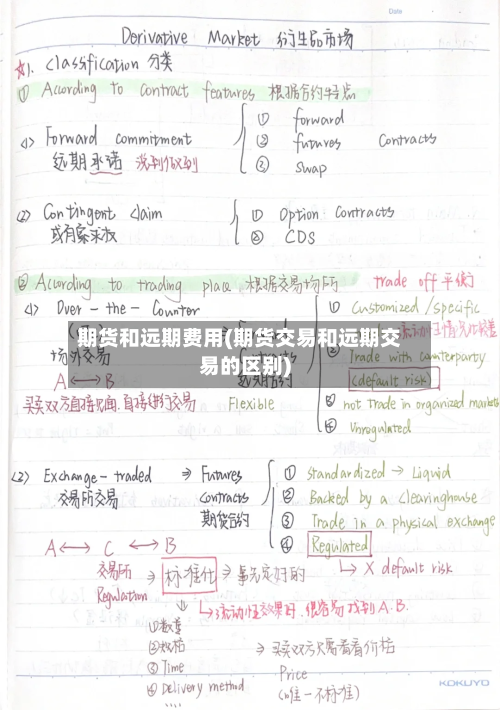 Date
Derivative Market 衍生品市场
☆1. Classification 分类
① According to contract features 根据合约特点
<1> Forward commitment
远期承诺 说到做到
① forward
② futures contracts
③ swap
<2> Contingent claim
或有索求权
① Option Contracts
② CDS
② According to trading place 根据交易场所 trade off 平衡
<1> Over-the-Counter
场外交易
A ↔ B
买卖双方直接见面,直接进行交易 Flexible
① Customized/specific
② Trade with counterparty
(default risk)
③ not trade in organized markets
④ Unregulated
期货和远期费用(期货交易和远期交
易的区别)
<2> Exchange-traded ⇒ Futures
交易所交易 Contracts
期货合约
① Standardized → Liquid
② Backed by a clearinghouse
③ Trade in a physical exchange
④ Regulated
↳ X default risk
A ↔ C ↔ B
交易所 ⇒ 标准化 ⇒ 事先定好的
Regulation
↳ 流动性效果好,很容易找到A.B.
① 数量
② 规格
③ Time
④ Delivery method
⇒ 买卖双方只需看看价格
Price
(唯一不标准)
KOKUYO